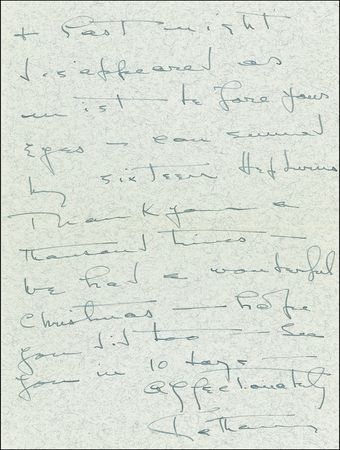 + Last night
disappeared as
mist — before your
eyes — consumed
by sixteen Hepburns
Thank you a
thousand times —
We had a wonderful
Christmas — hope
you did too — See
you in 10 days —
Affectionately